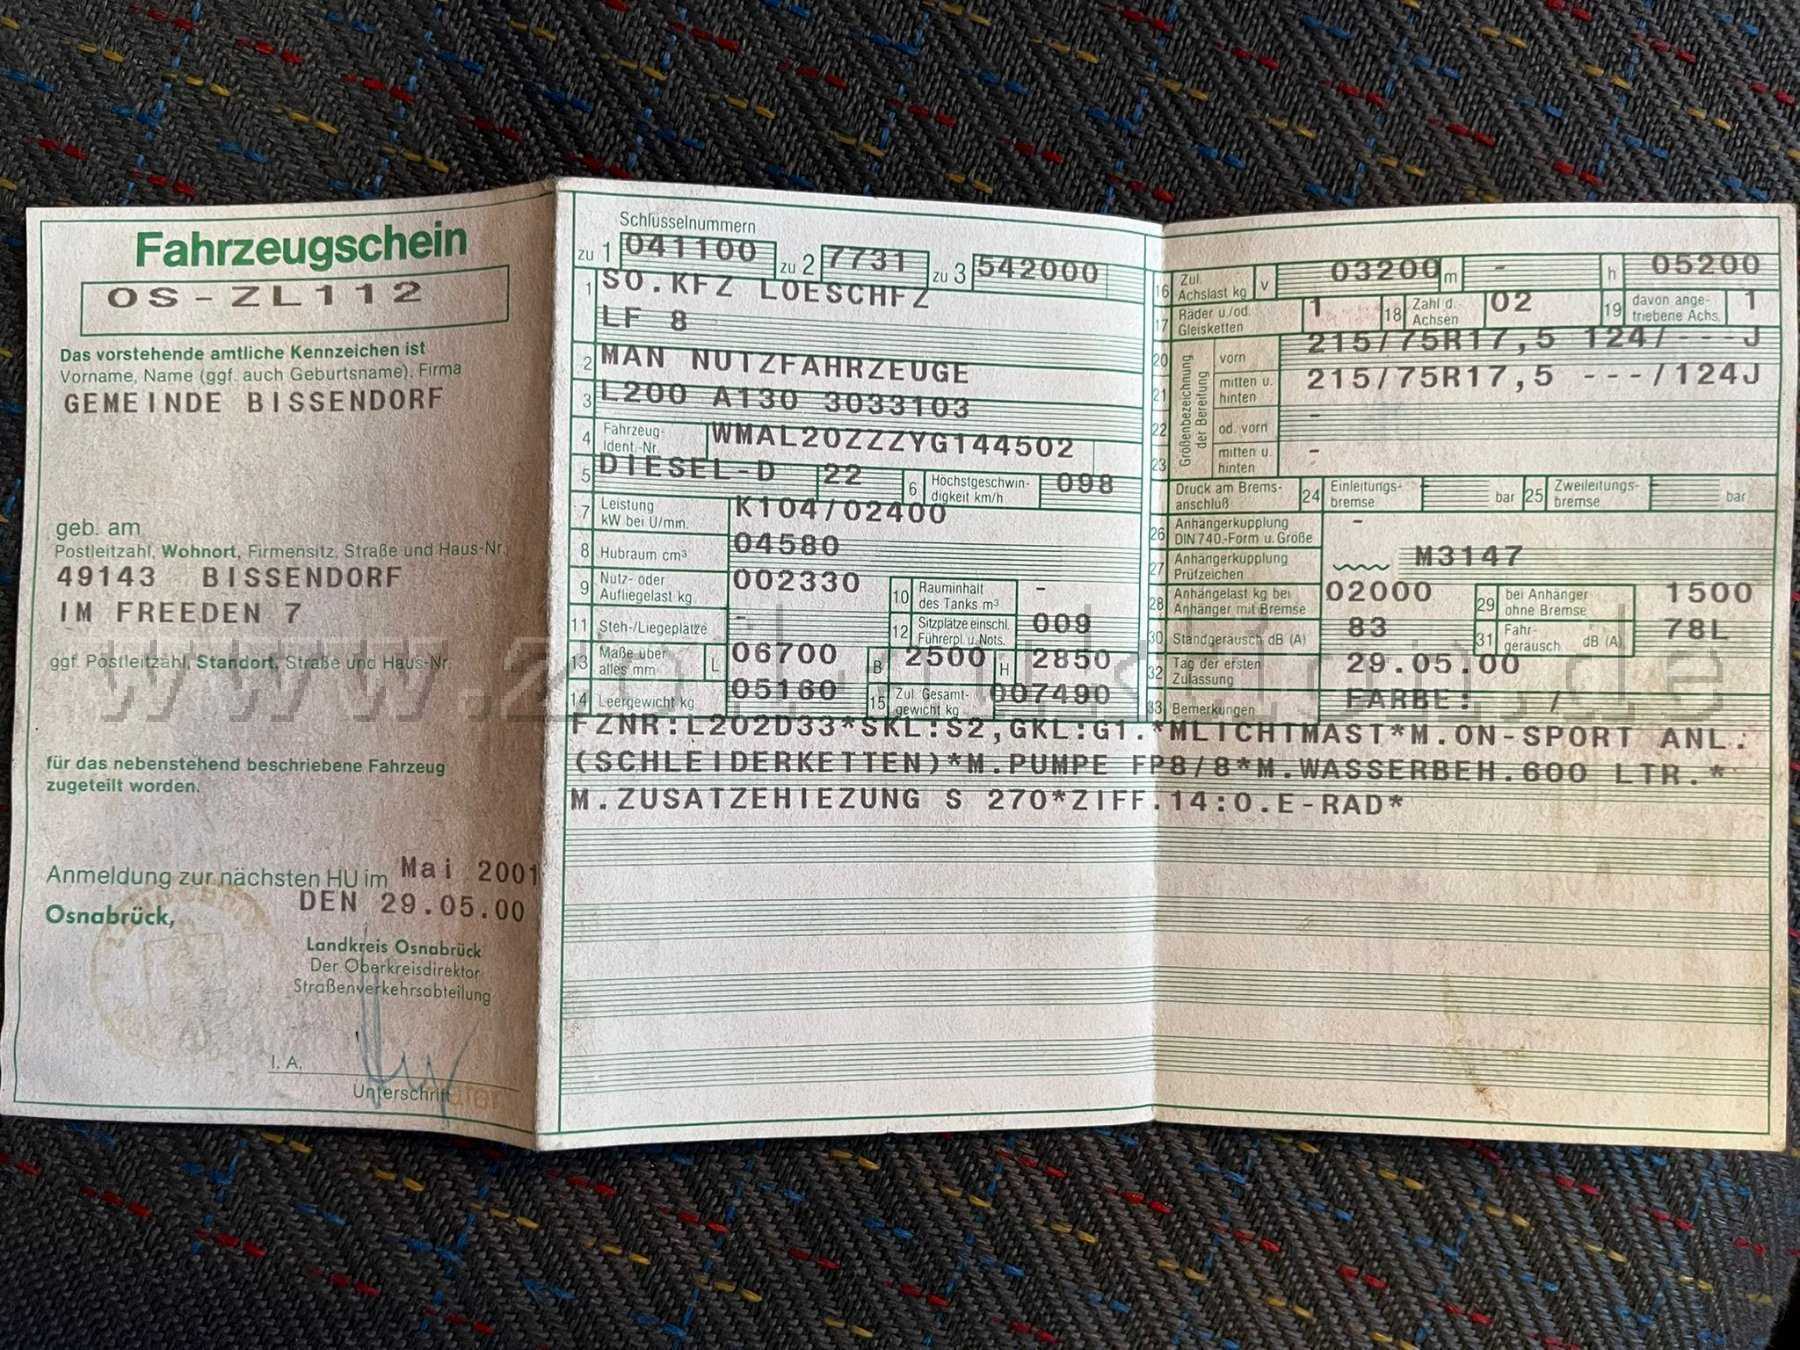 Fahrzeugschein
OS-ZL112
Das vorstehende amtliche Kennzeichen ist
Vorname, Name (ggf. auch Geburtsname), Firma
GEMEINDE BISSENDORF
geb. am
Postleitzahl, Wohnort, Firmensitz, Straße und Haus-Nr.
49143 BISSENDORF
IM FREEDEN 7
ggf. Postleitzahl, Standort, Straße und Haus-Nr.
für das nebenstehend beschriebene Fahrzeug
zugeteilt worden.
Anmeldung zur nächsten HU im Mai 2001
DEN 29.05.00
Osnabrück,
Landkreis Osnabrück
Der Oberkreisdirektor
Straßenverkehrsabteilung
I. A.
Unterschrift
Schlüsselnummern
zu 1 041100 zu 2 7731 zu 3 542000
1 SO.KFZ LOESCHFZ
LF 8
2 MAN NUTZFAHRZEUGE
3 L200 A130 3033103
4 Fahrzeug-Ident.-Nr. WMAL20ZZZYG144502
5 DIESEL-D 22 6 Höchstgeschwindigkeit km/h 098
7 Leistung kW bei U/min. K104/02400
8 Hubraum cm³ 04580
9 Nutz- oder Aufliegelast kg 002330 10 Rauminhalt des Tanks m³ -
11 Steh-/Liegeplätze - 12 Sitzplätze einschl. Führerpl. u. Nots. 009
13 Maße über alles mm L 06700 B 2500 H 2850
14 Leergewicht kg 05160 15 Zul. Gesamtgewicht kg 007490
16 Zul. Achslast kg v 03200 m - h 05200
17 Räder u./od. Gleisketten 1 18 Zahl d. Achsen 02 19 davon angetriebene Achs. 1
Größenbezeichnung der Bereifung
20 vorn 215/75R17,5 124/---J
21 mitten u. hinten 215/75R17,5 ---/124J
22 od. vorn -
23 mitten u. hinten -
Druck am Bremsanschluß 24 Einleitungsbremse bar 25 Zweileitungsbremse bar
26 Anhängerkupplung DIN 740-Form u. Größe -
27 Anhängerkupplung Prüfzeichen M3147
28 Anhängelast kg bei Anhänger mit Bremse 02000 29 bei Anhänger ohne Bremse 1500
30 Standgeräusch dB (A) 83 31 Fahrgeräusch dB (A) 78L
32 Tag der ersten Zulassung 29.05.00
33 Bemerkungen FARBE: /
FZNR:L202D33*SKL:S2,GKL:G1.*MLICHTMAST*M.ON-SPORT ANL.
(SCHLEIDERKETTEN)*M.PUMPE FP8/8*M.WASSERBEH.600 LTR.*
M.ZUSATZEHIEZUNG S 270*ZIFF.14:O.E-RAD*